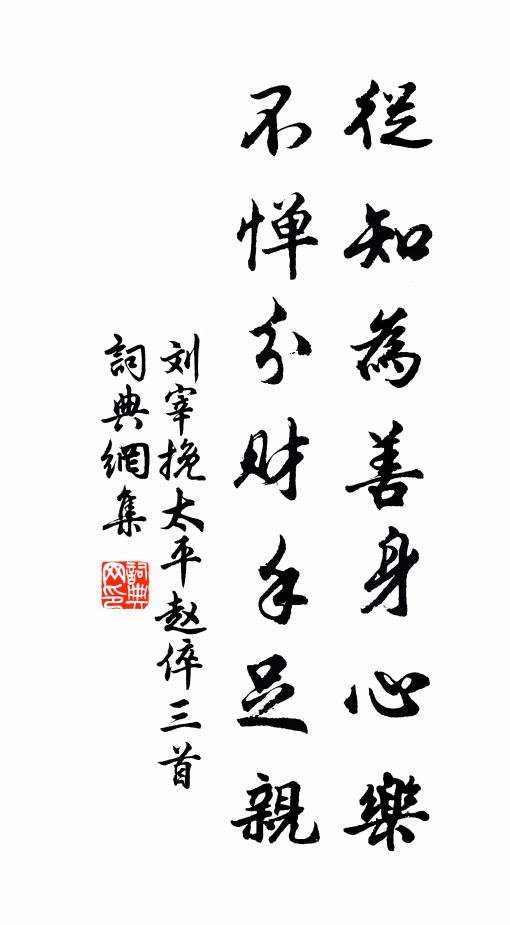 從知為善身心樂
不惮分財手足親
刘宰挽太平赵倅三首
詞典網集
詞典网印